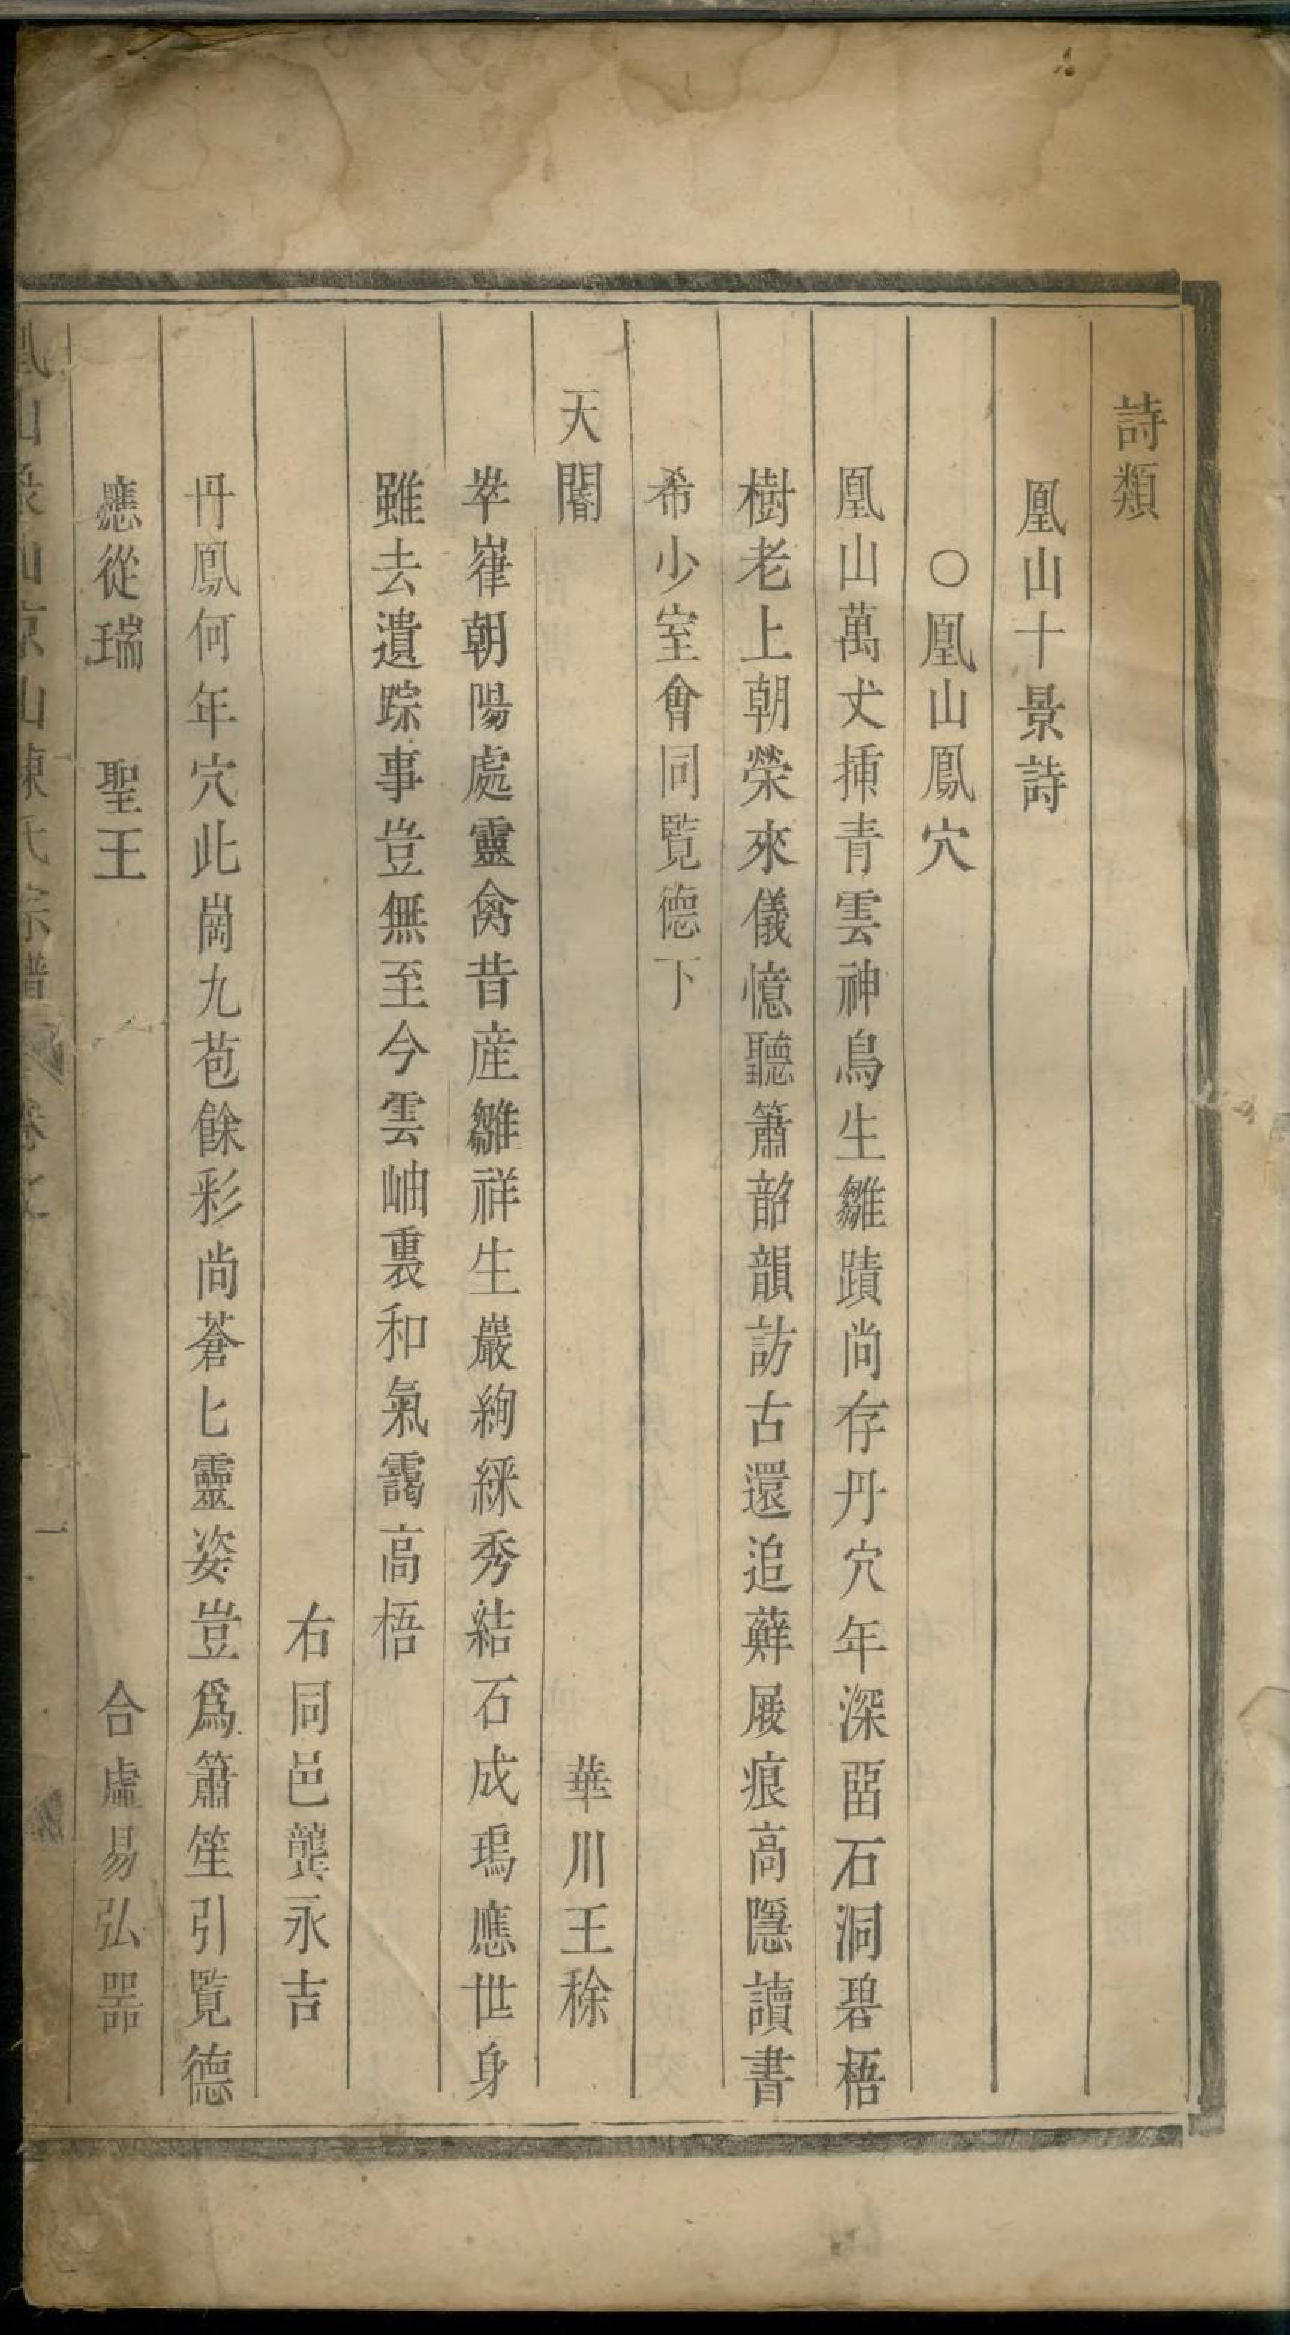 詩類
凰山十景詩
○凰山鳳穴
凰山萬丈揷青雲神鳥生雛蹟尚存丹穴年深畱石洞碧梧
樹老上朝榮來儀憶聽簫韶韻訪古還追蘚屐痕高隱讀書
希少室會同覧德下
天闇
華川王稌
崒嵂朝陽處靈禽昔産雛祥生巖絢綵秀結石成瑦應世身
雖去遺踪事豈無至今雲岫裏和氣靄高梧
右同邑龔永吉
丹鳳何年穴此崗九苞餘彩尚蒼匕靈姿豈爲簫笙引覧德
應從瑞 聖王
合虛易弘器
凰山 山陳氏宗譜 卷之 一